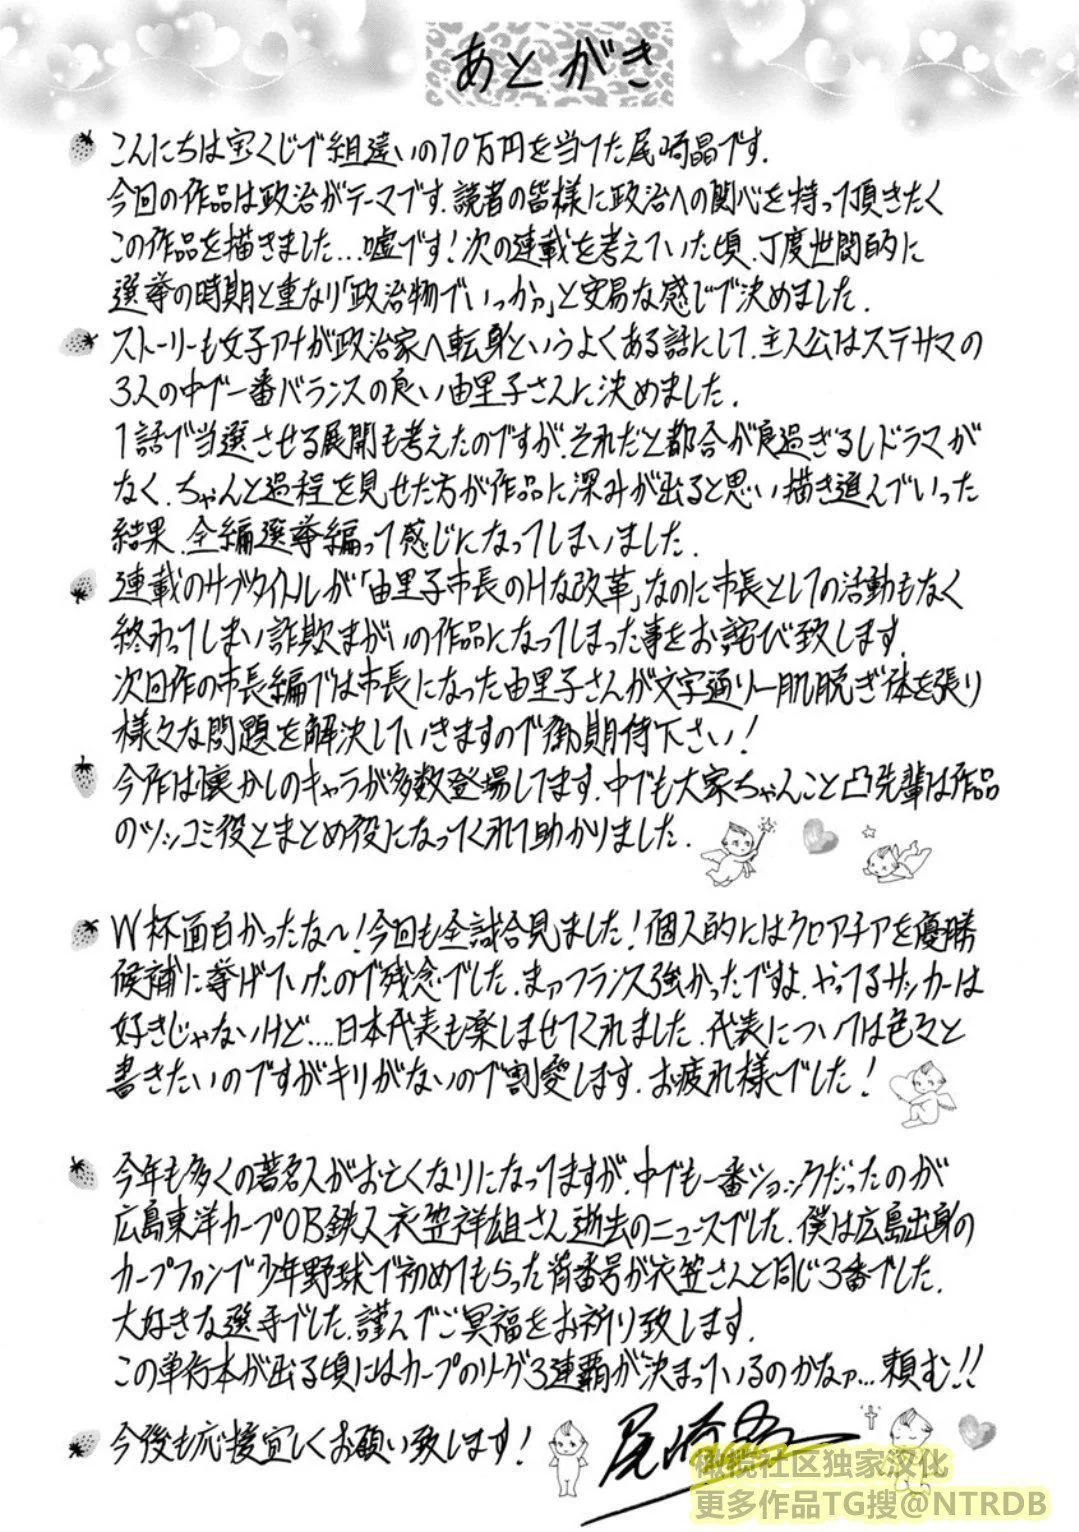 あとがき
こんにちは宝くじで組違いの10万円を当てた尾崎晶です.
今回の作品は政治がテーマです.読者の皆様に政治への関心を持って頂きたく
この作品を描きました…嘘です!次の連載を考えていた頃、丁度世間的に
選挙の時期と重なり「政治物でいっか。」と安易な感じで決めました.
ストーリーも女子アナが政治家へ転身というよくある話にして、主人公はステサマの
3人の中で一番バランスの良い由里子さんに決めました.
1話で当選させる展開も考えたのですが、それだと都合が良過ぎるしドラマが
なく、ちゃんと過程を見せた方が作品に深みが出ると思い描き進んでいった
結果、全編選挙編って感じになってしまいました.
連載のサブタイトルが「由里子市長のHな改革」なのに市長としての活動もなく
終わってしまい詐欺まがいの作品になってしまった事をお詫び致します.
次回作の市長編では市長になった由里子さんが文字通り一肌脱ぎ体を張り
様々な問題を解決していきますので御期待下さい!
今作は懐かしのキャラが多数登場してます.中でも大家ちゃんこと凸先輩は作品
のツッコミ役とまとめ役になってくれて助かりました.
W杯面白かったな~!今回も全試合見ました!個人的にはクロアチアを優勝
候補に挙げていたので残念でした.まァフランス強かったですよ.やってるサッカーは
好きじゃないけど….日本代表も楽しませてくれました.代表については色々と
書きたいのですがキリがないので割愛します.お疲れ様でした!
今年も多くの著名人がお亡くなりになってますが、中でも一番ショックだったのが
広島東洋カープOB鉄人衣笠祥雄さん逝去のニュースでした.僕は広島出身の
カープファンで少年野球で初めてもらった背番号が衣笠さんと同じ3番でした.
大好きな選手でした.謹んでご冥福をお祈り致します.
この単行本が出る頃にはカープのリーグ3連覇が決まっているのかなァ…頼む!!
今後も応援宜しくお願い致します!
尾崎晶
橄榄社区独家汉化
更多作品TG搜@NTRDB